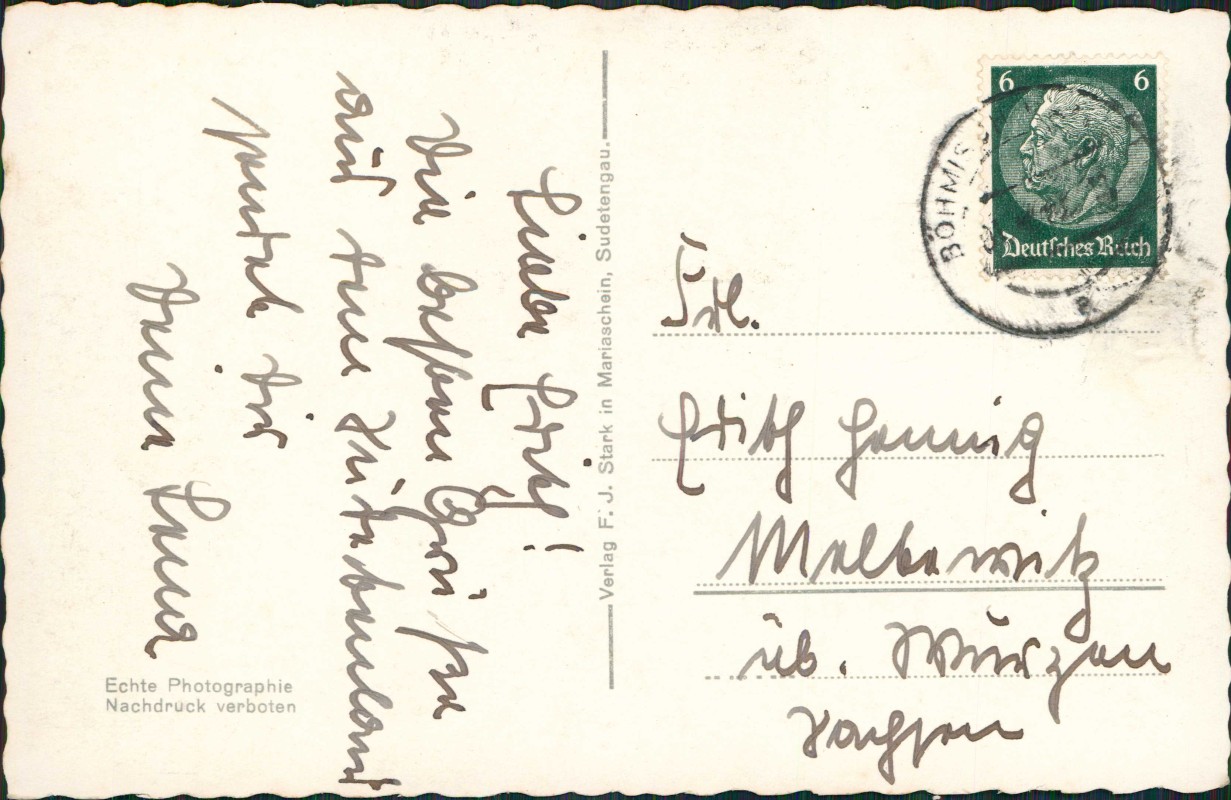 Liebe Edith!
Die besten Grüsse
aus dem Sudetenland
sendet Dir
Deine
Echte Photographie
Nachdruck verboten
Verlag F. J. Stark in Mariaschein, Sudetengau.
6 6
Deutsches Reich
BÖHMIS
Frl.
Edith Hennig
Meltewitz
üb. Wurzen
Sachsen